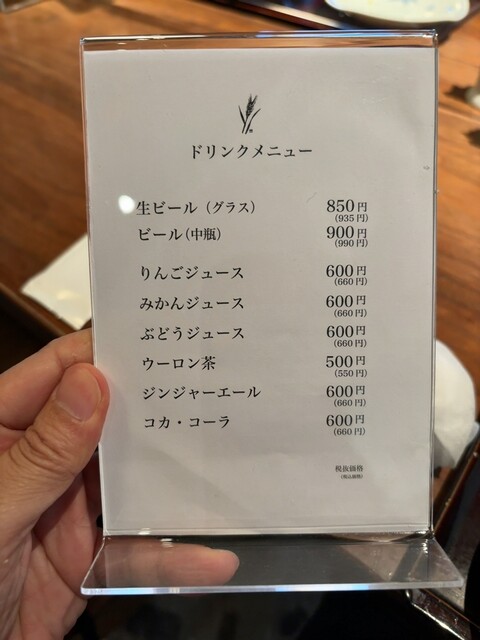 ドリンクメニュー
生ビール（グラス） 850円
(935円)
ビール(中瓶) 900円
(990円)
りんごジュース 600円
(660円)
みかんジュース 600円
(660円)
ぶどうジュース 600円
(660円)
ウーロン茶 500円
(550円)
ジンジャーエール 600円
(660円)
コカ・コーラ 600円
(660円)
税抜価格
(税込価格)